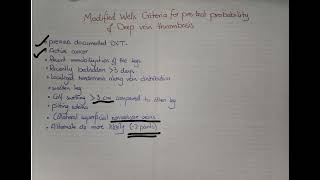 Modified Wells Criteria for pre-test probability
of Deep vein thrombosis
previous documented DVT.
Active cancer
Recent immobilization of the legs
Recently bedridden >3 days
Localized tenderness along vein distribution
swollen leg
Calf swelling >3cm compared to other leg
pitting edema
Collateral superficial nonvaricose veins
Alternate dx more likely (-2 points)